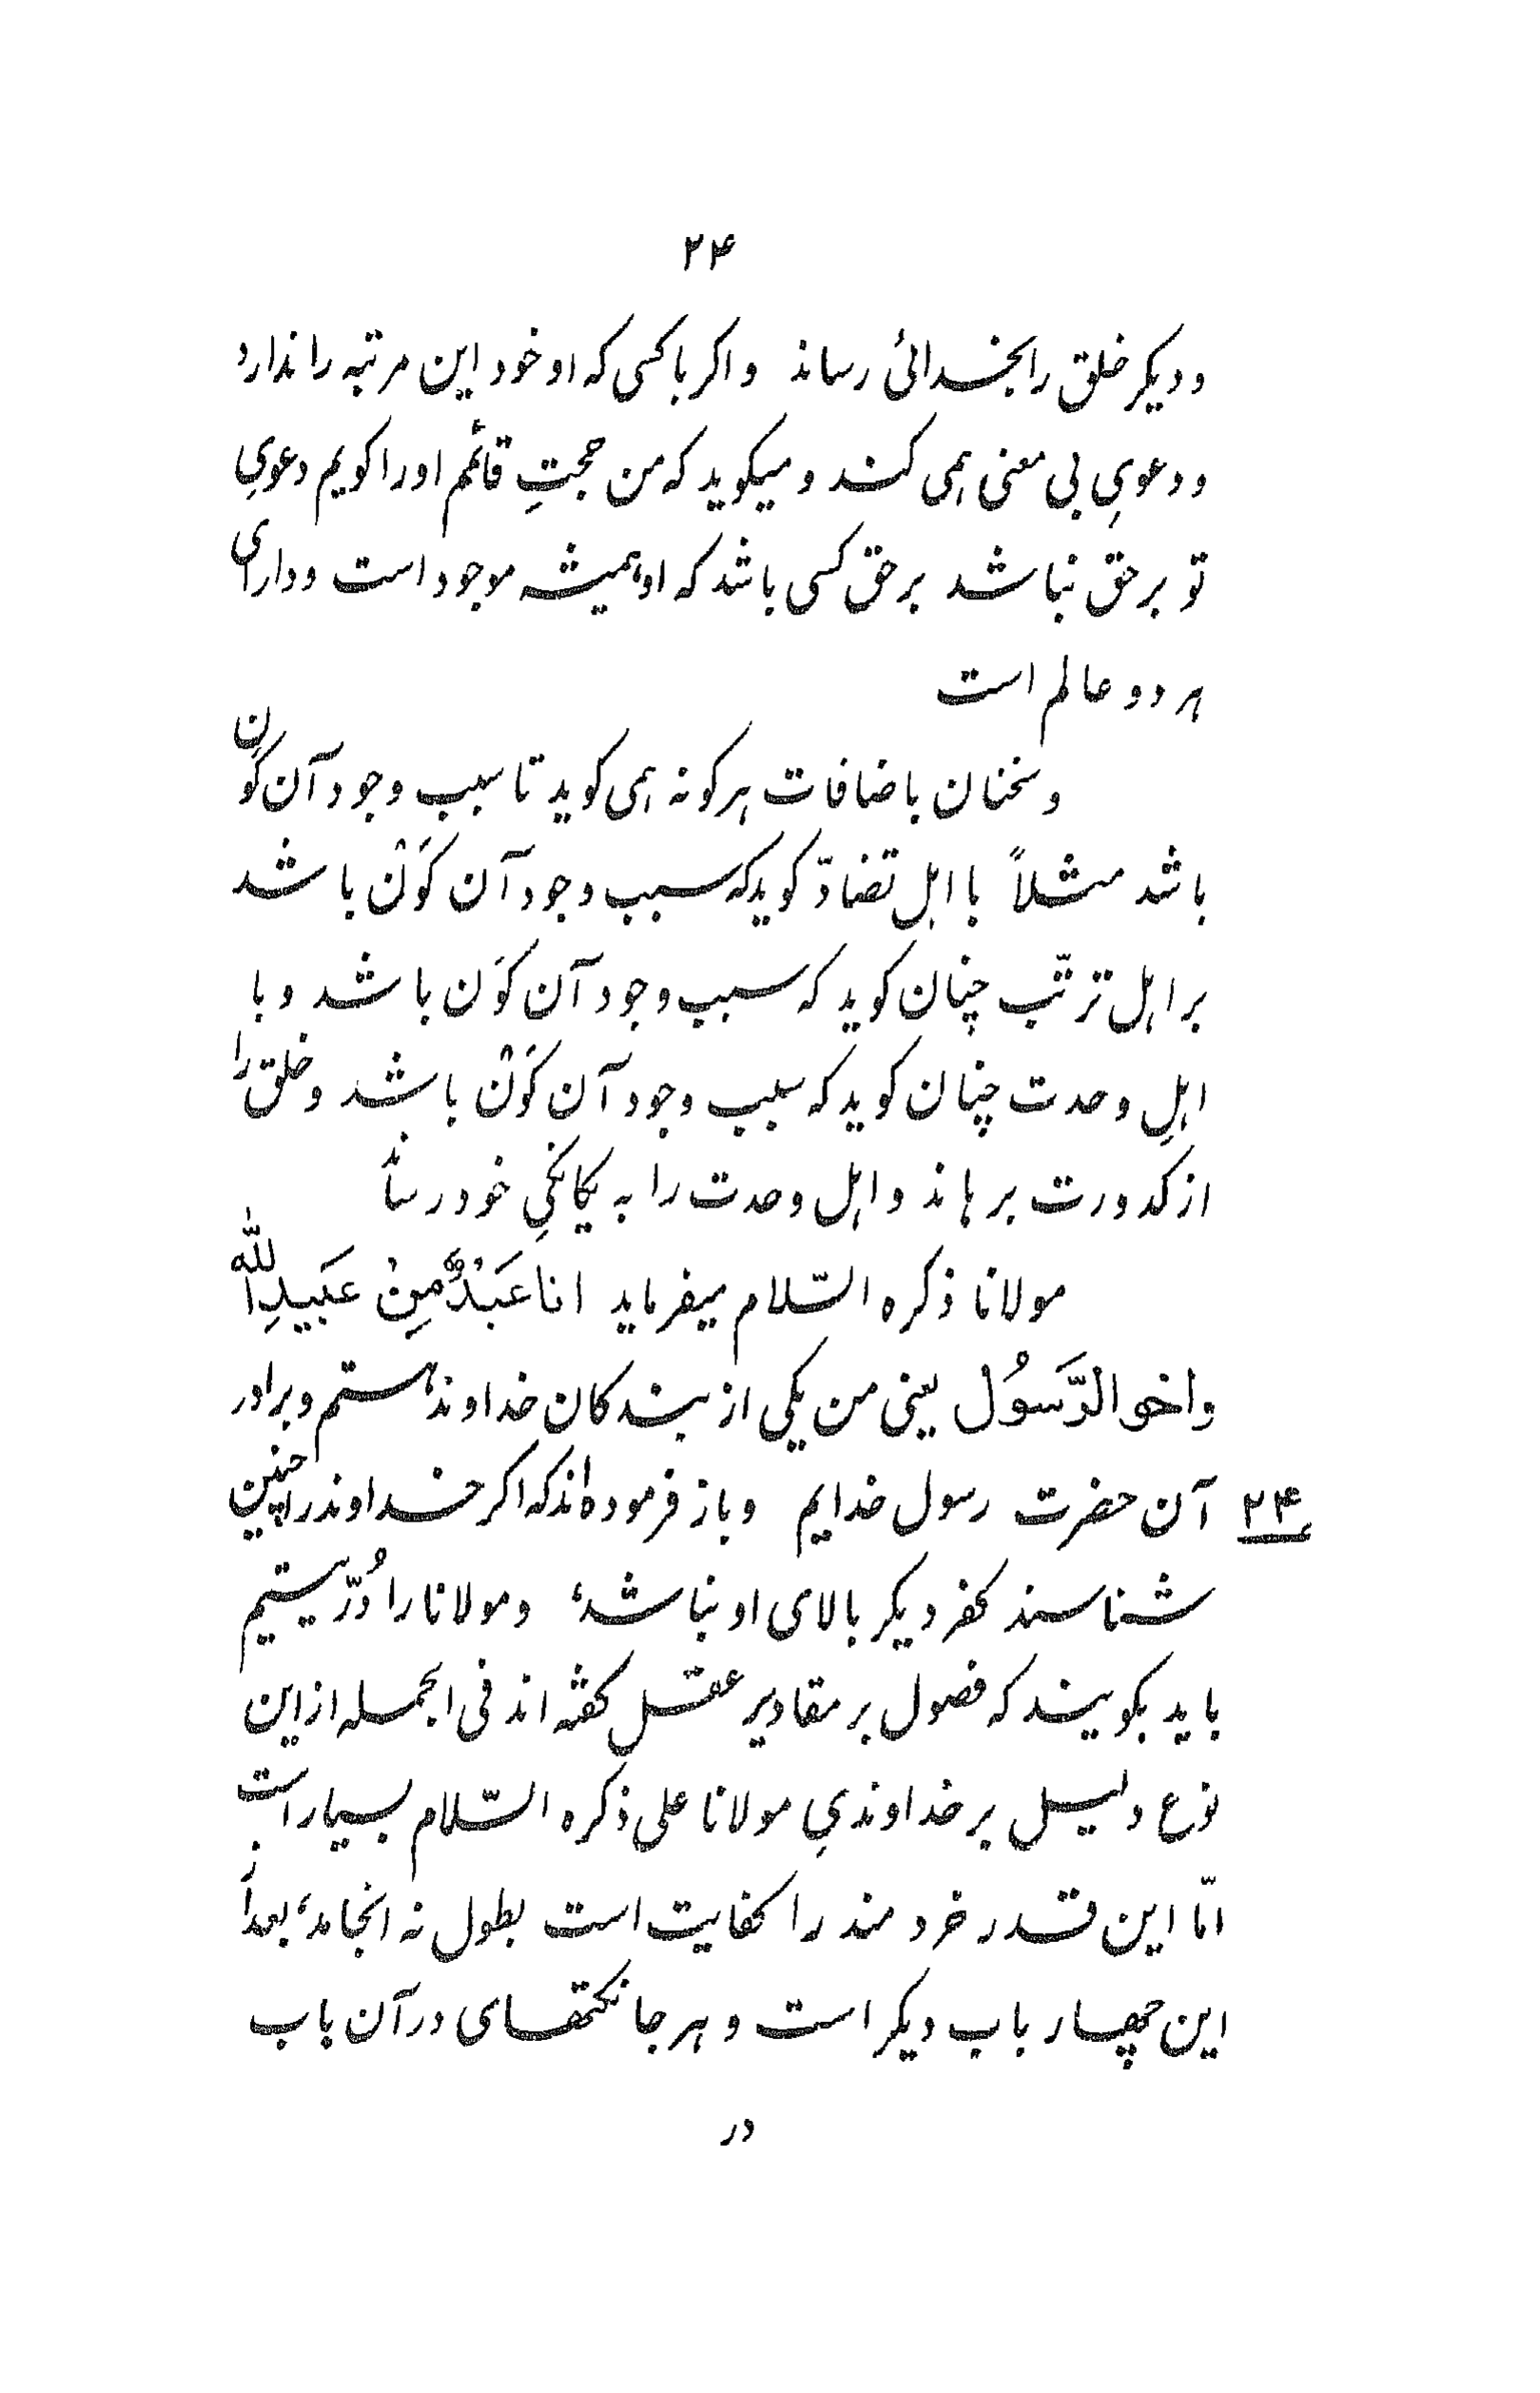 ۲۴
و دیکر خلق را بخدائی رساند و اکر با کسی که او خود این مرتبه را ندارد
و دعویِ بی معنی همی کند و میکوید که من حجتِ قائمم او را کویم دعویِ
تو بر حق نباشد بر حق کسی باشد که او همیشه موجود است و دارای
هر دو عالم است
و سخنان باضافات هر کونه همی کوید تا سبب وجود آن کَون
باشد مثلاً با اهل تضادّ کوید که سبب وجود آن کَوْن باشد
بر اهل ترتّب چنان کوید که سبب وجود آن کَون باشد و با
اهلِ وحدت چنان کوید که سبب وجود آن کَوْن باشد و خلق را
از کدورت برهاند و اهل وحدت را به یکانکیِ خود رساند
مولانا ذکره السّلام میفرماید انا عَبْدٌ مِنْ عَبیدِ الله
واخو الرَّسوُل یعنی من یکی از بندکان خداوند هستم و برادر
۲۴ آن حضرت رسول خدایم و باز فرموده‌اند که اکر خداوند را چنین
شناسند کفر دیکر بالای او نباشد، و مولانا را دُرّ یتیم
باید بکویند که فصول بر مقادیر عقل کفته اند فی الجمله از این
نوع دلیل بر خداوندیِ مولانا علی ذکره السّلام بسیار است
امّا این قدر خردمند را کفایت است بطول نه انجامد، بعد از
این چهار باب دیکر است و هر جا نکتهای در آن باب
در